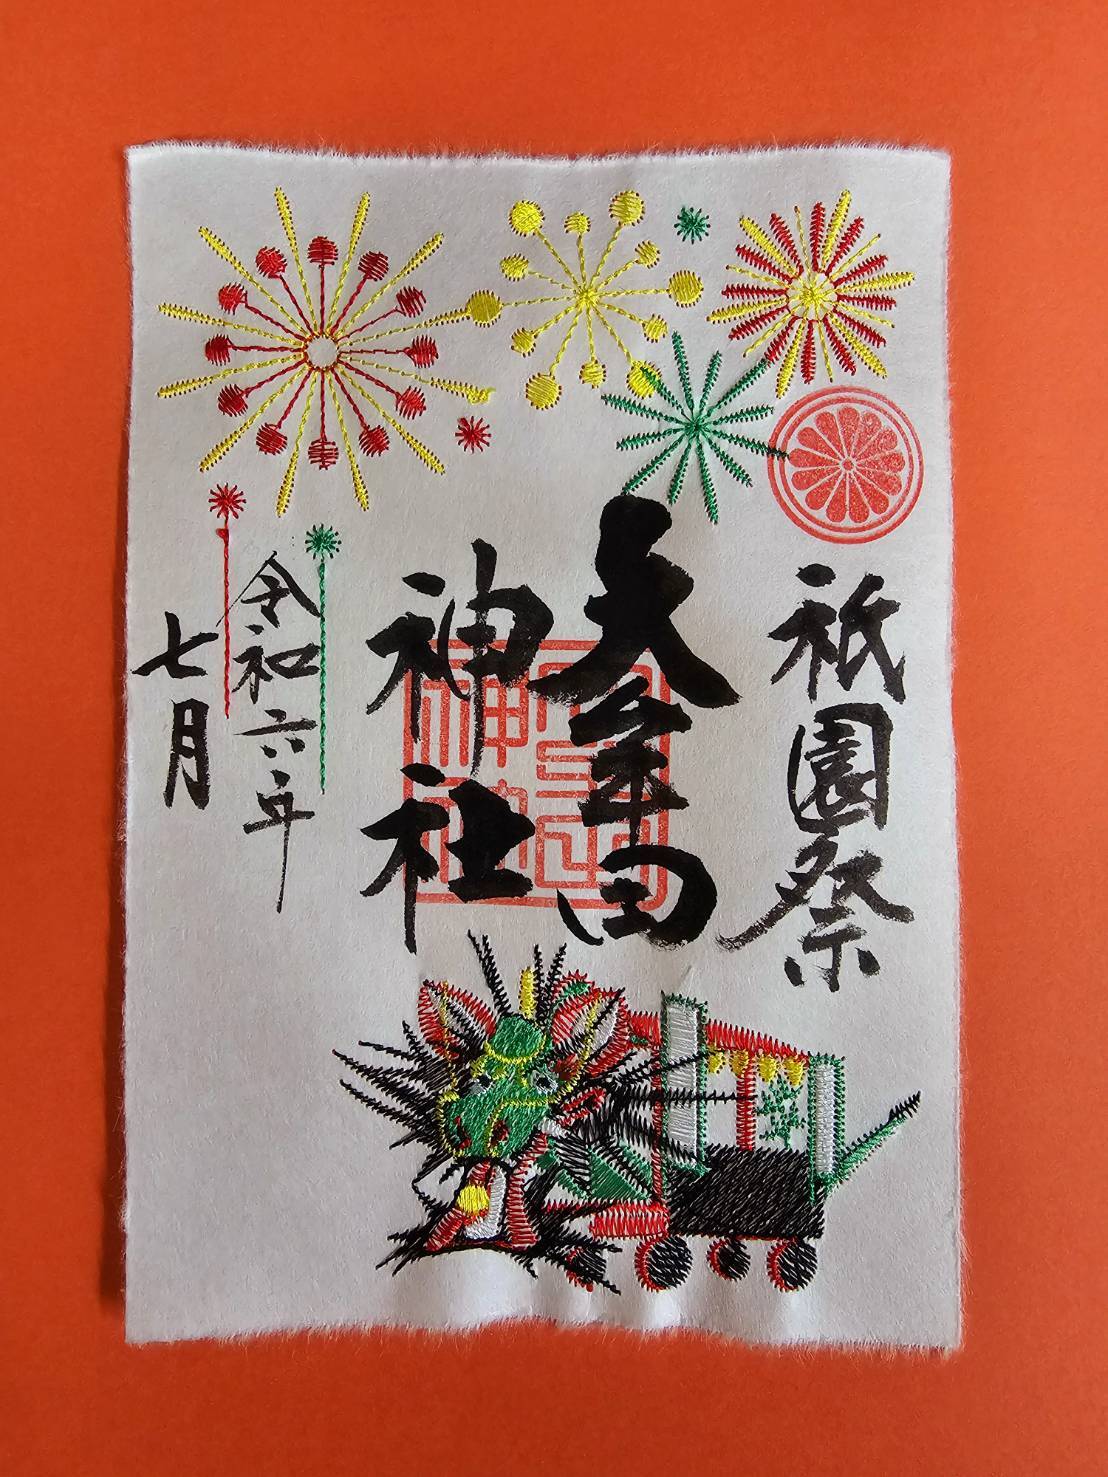 祇園祭
大牟田
神社
令和六年
七月